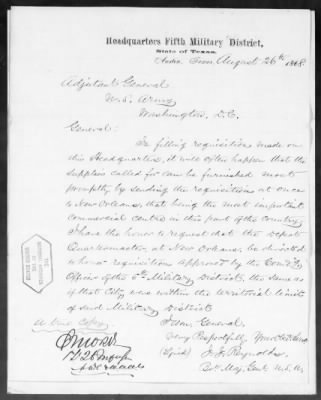 Headquarters Fifth Military District,
State of Texas.
Austin, Texas, August 26th 1868.
Adjutant General
U.S. Army
Washington, D.C.
General:
In filling requisitions made on
this Headquarters, it will often happen that the
supplies called for can be furnished most
promptly by sending the requisitions at once
to New Orleans, that being the most important
commercial centre in this part of the country.
I have the honor to request that the Depot
Quartermaster, at New Orleans, be directed
to honor requisitions approved by the Comd'g
Officer of the 5th Military District, the same as
if that City was within the territorial limits
of said Military District.
I am, General,
Very Respectfully, Your Obt Servt
(Sg'd) J. J. Reynolds,
Bvt Maj. Genl U.S.A.
A true copy